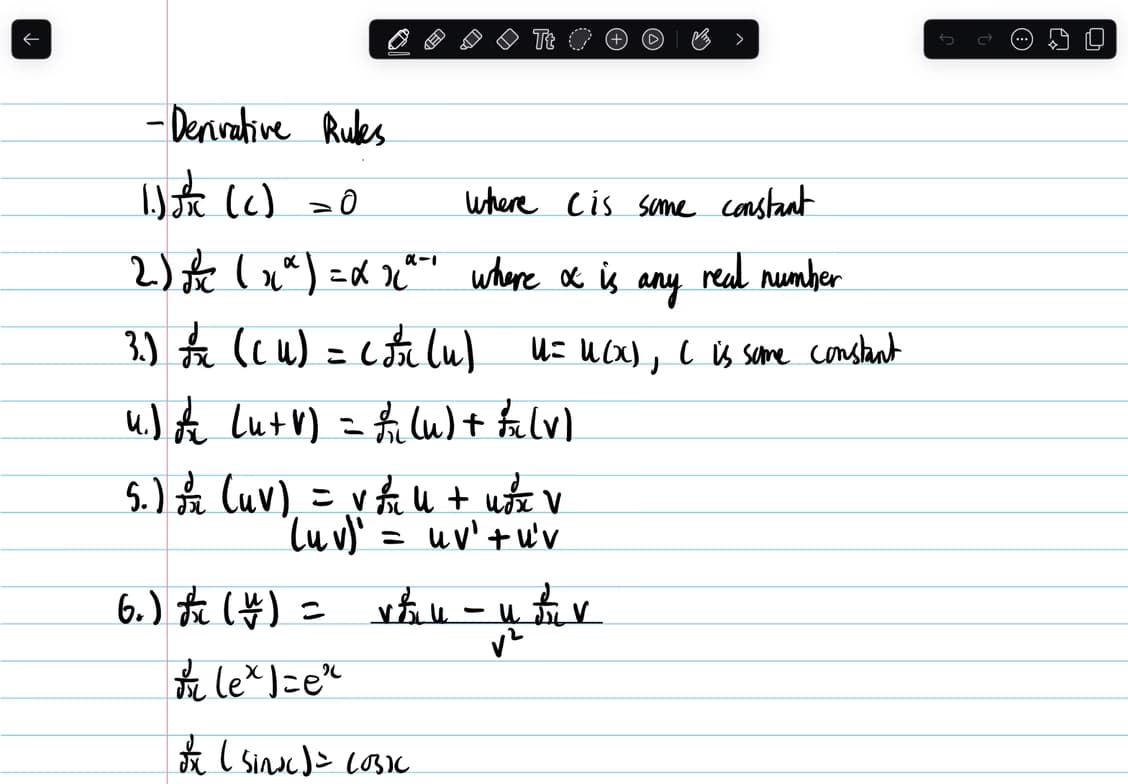 Tt
- Derivative Rules
1.) d/dx (c) = 0 where c is some constant
2.) d/dx (x^α) = α x^(α-1) where α is any real number
3.) d/dx (cu) = c d/dx (u) u = u(x), c is some constant
4.) d/dx (u+v) = d/dx (u) + d/dx (v)
5.) d/dx (uv) = v d/dx u + u d/dx v
(uv)' = uv' + u'v
6.) d/dx (u/v) = (v d/dx u - u d/dx v) / v²
d/dx (e^x) = e^x
d/dx (sinx) = cosx